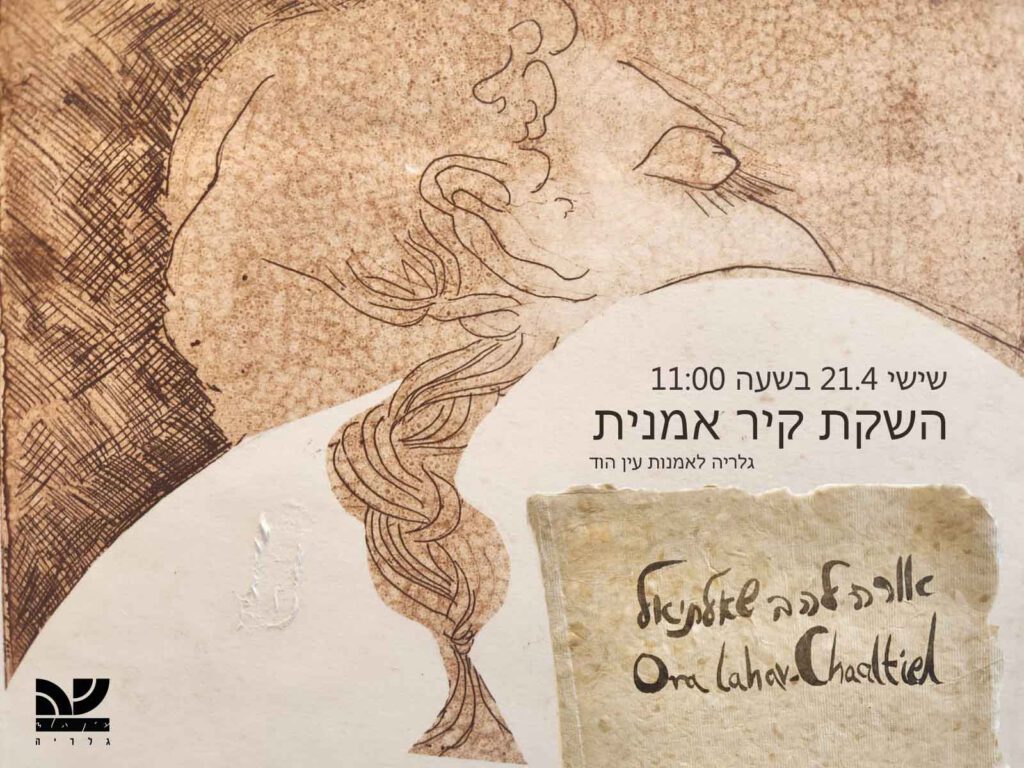 שישי 21.4 בשעה 11:00
השקת קיר אמנית
גלריה לאמנות עין הוד
אורה להב שאלתיאל
Ora Lahav-Chaaltiel
גלריה